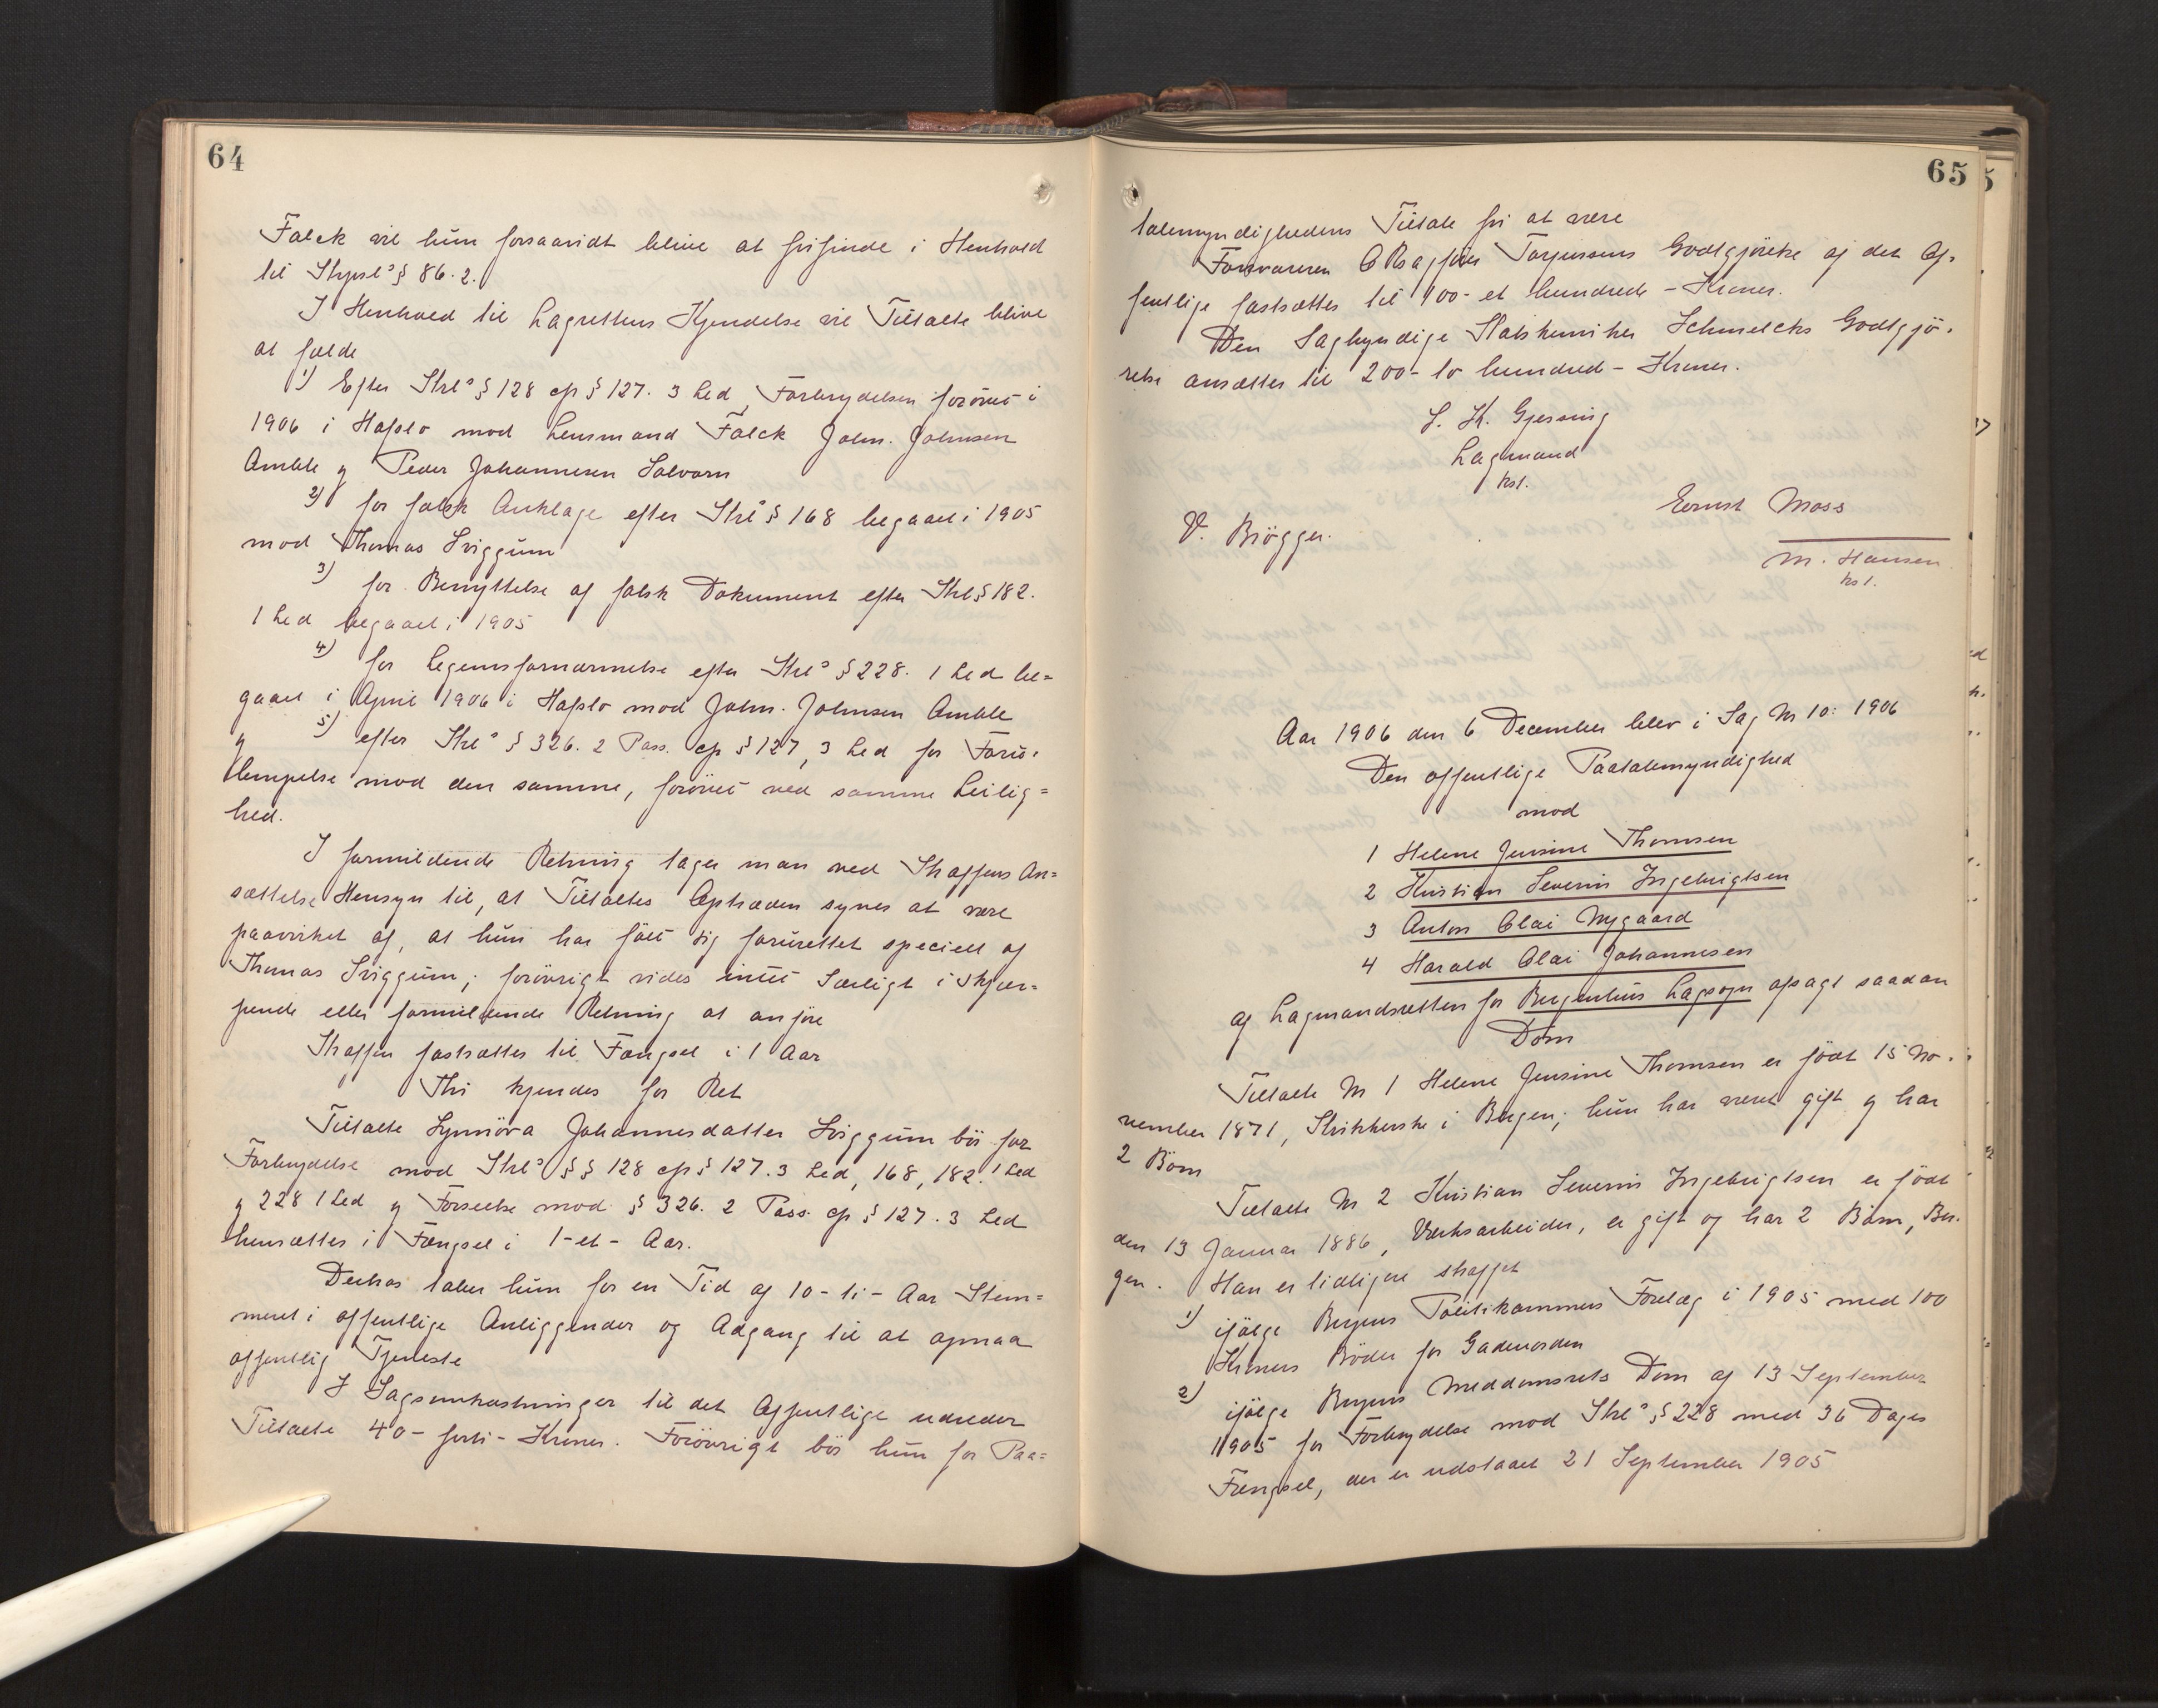 64
Falck vil hun forsaavidt blive at frifinde i Henhold
til Strprl's § 86.2.
I Henhold til Lagrettens Kjendelse vil Tiltalte blive
at fælde
1) Efter Strl's § 128 cfr § 127. 3 Led, Forbrydelsen forøvet i
1906 i Hafslo mod Lensmand Falck John. Johnsen
Amble og Peder Johannesen Solvorn
2) for falsk Anklage efter Strl's § 168 begaaet i 1905
mod Thomas Sviggum
3) for Benyttelse af falsk Dokument efter Strl § 182.
1 Led begaaet i 1905
4) for Legemsfornærmelse efter Strl's § 228. 1 Led be=
gaaet i April 1906 i Hafslo mod John. Johnsen Amble
og 5) efter Strl's § 326. 2 Pass. cfr § 127, 3 Led for Foru-
lempelse mod den samme, forøvet ved samme Leilig=
hed.
I formildende Retning tager man ved Straffens An=
sættelse Hensyn til, at Tiltaltes Optræden synes at være
paavirket af, at hun har følt sig forurettet specielt af
Thomas Sviggum; forøvrigt vides intet Særligt i skjær=
pende eller formildende Retning at anføre
Straffen fastsættes til Fængsel i 1 Aar
Thi kjendes for Ret
Tiltalte Synnöva Johannesdatter Sviggum bør for
Forbrydelse mod Strl's §§ 128 cfr § 127.3 Led, 168, 182.1 Led
og 228 1 Led og Forseelse mod § 326. 2 Pass. cfr § 127.3 Led
hensættes i Fængsel i 1-et- Aar.
Derhos taber hun for en Tid af 10-ti- Aar Stem=
meret i offentlige Anliggender og Adgang til at opnaa
offentlig Tjeneste
I Sagsomkostninger til det Offentlige udreder
Tiltalte 40-forti-Kroner. Forøvrigt bør hun for Paa=
65
talemyndighedens Tiltale fri at være
Forsvareren Torjussens Godtgjørelse af det Of-
fentlige fastsættes til 100-et hundrede-Kroner.
Den Sagkyndige Statskemiker Schmelcks Godtgjö-
relse ansættes til 200-to hundred-Kroner.
S. K. Gjessing
Lagmand
kst.
Ernst Moss
V. Brögger.
M. Hansen
kst.
Aar 1906 den 6 December blev i Sag No 10: 1906
Den offentlige Paatalemyndighed
mod
1 Helene Jensine Thomsen
2 Kristian Severin Ingebrigtsen
3 Anton Olai Nygaard
4 Harald Olai Johannesen
af Lagmandsretten for Bergenhus Lagsogn afsagt saadan
Dom
Tiltalte No 1 Helene Jensine Thomsen er født 15 No-
vember 1871, Strikkerske i Bergen; hun har været gift og har
2 Børn
Tiltalte No 2 Kristian Severin Ingebrigtsen er født
den 13 Januar 1886, Værksarbeider, er gift og har 2 Børn, Ber-
gen. Han er tidligere straffet
1) ifølge Bergens Politikammers Forelæg i 1905 med 100
Kroners Bøder for Gadeuorden
2) ifølge Bergens Meddomsrets Dom af 13 September
1905 for Forbrydelse mod Strl's § 228 med 36 Dages
Fængsel, der er udstaaet 21 September 1905